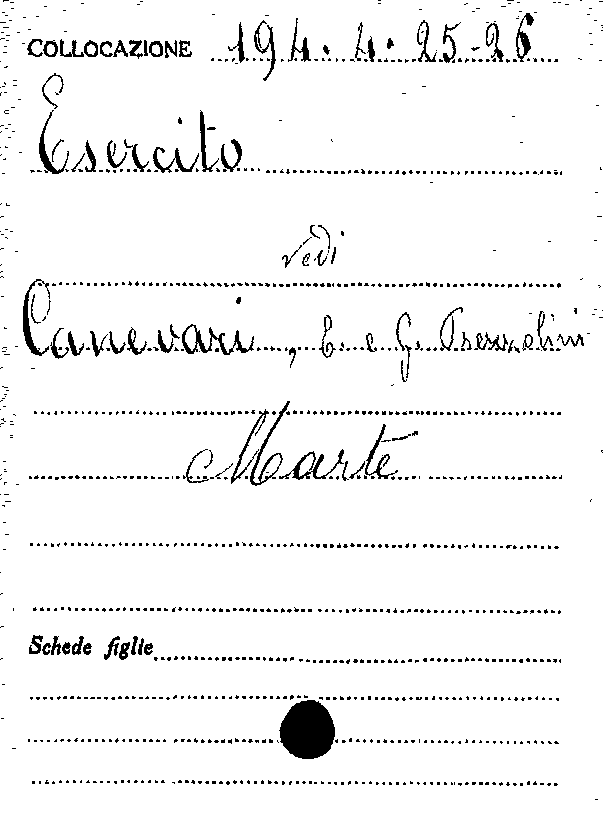 COLLOCAZIONE 194.4.25-26
Esercito
vedi
Canevari, E. e G. Prezzolini
Marte
Schede figlie